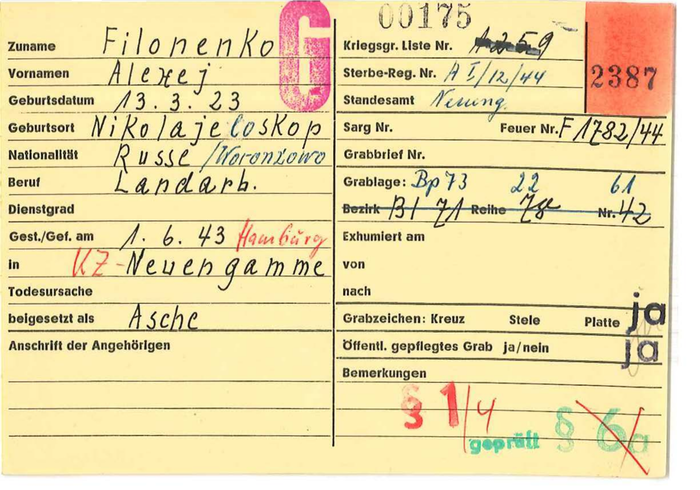 00175
2387
G
Zuname Filonenko
Vornamen Alexej
Geburtsdatum 13.3.23
Geburtsort Nikolajeloskop
Nationalität Russe /Woronzowo
Beruf Landarb.
Dienstgrad
Gest./Gef. am 1.6.43 Hamburg
in KZ-Neuengamme
Todesursache
beigesetzt als Asche
Anschrift der Angehörigen
Kriegsgr. Liste Nr. A 259
Sterbe-Reg. Nr. A I/12/44
Standesamt Neueng.
Sarg Nr. Feuer Nr. F 1782/44
Grabbrief Nr.
Grablage: Bp 73 22 61
Bezirk Bl 71 Reihe 78 Nr. 42
Exhumiert am
von
nach
Grabzeichen: Kreuz Stele Platte ja
Öffentl. gepflegtes Grab ja/nein ja
Bemerkungen
§ 1/4
3
geprüft § 6a